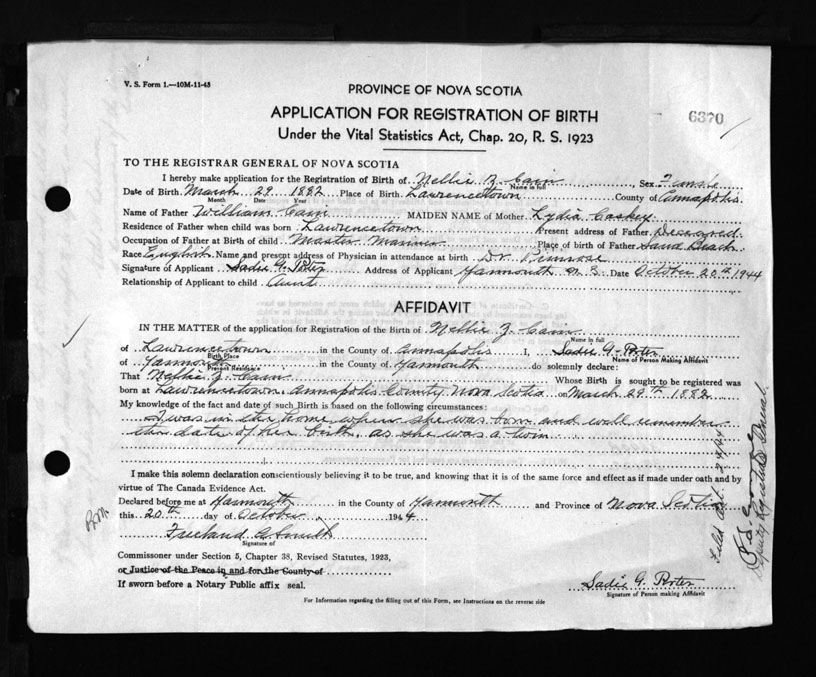 V. S. Form 1.—10M-11-43
PROVINCE OF NOVA SCOTIA
APPLICATION FOR REGISTRATION OF BIRTH
6370
Under the Vital Statistics Act, Chap. 20, R. S. 1923
TO THE REGISTRAR GENERAL OF NOVA SCOTIA
I hereby make application for the Registration of Birth of Nellie Z. Cain, Sex Female
Name in full
Date of Birth March 29 1882 Place of Birth Lawrencetown County of Annapolis
Month Date Year
Name of Father William Cain MAIDEN NAME of Mother Lydia Caskey
Residence of Father when child was born Lawrencetown Present address of Father Deceased
Occupation of Father at Birth of child Master Mariner Place of birth of Father Sand Beach
Race English Name and present address of Physician in attendance at birth Dr Primrose
Signature of Applicant Sadie G. Porter Address of Applicant Yarmouth N.S. Date October 20th 1944
Relationship of Applicant to child Aunt
AFFIDAVIT
IN THE MATTER of the application for Registration of the Birth of Nellie Z. Cain
Name in full
of Lawrencetown in the County of Annapolis I, Sadie G. Porter
Birth Place Name of Person Making Affidavit
of Yarmouth in the County of Yarmouth do solemnly declare:
Present Residence
That Nellie Z. Cain Whose Birth is sought to be registered was
born at Lawrencetown Annapolis County Nova Scotia on March 29th 1882
My knowledge of the fact and date of such Birth is based on the following circumstances:
I was in the home when she was born and well remember
the date of her birth, as she was a twin
I make this solemn declaration conscientiously believing it to be true, and knowing that it is of the same force and effect as if made under oath and by
virtue of The Canada Evidence Act.
Declared before me at Yarmouth in the County of Yarmouth and Province of Nova Scotia
this 20th day of October 1944
Freeland A. Smith
Signature of
Commissioner under Section 5, Chapter 38, Revised Statutes, 1923,
or Justice of the Peace in and for the County of
If sworn before a Notary Public affix seal.
Sadie G. Porter
Signature of Person making Affidavit
For Information regarding the filling out of this Form, see Instructions on the reverse side
Filed Oct. 24/44
Deputy Registrar General